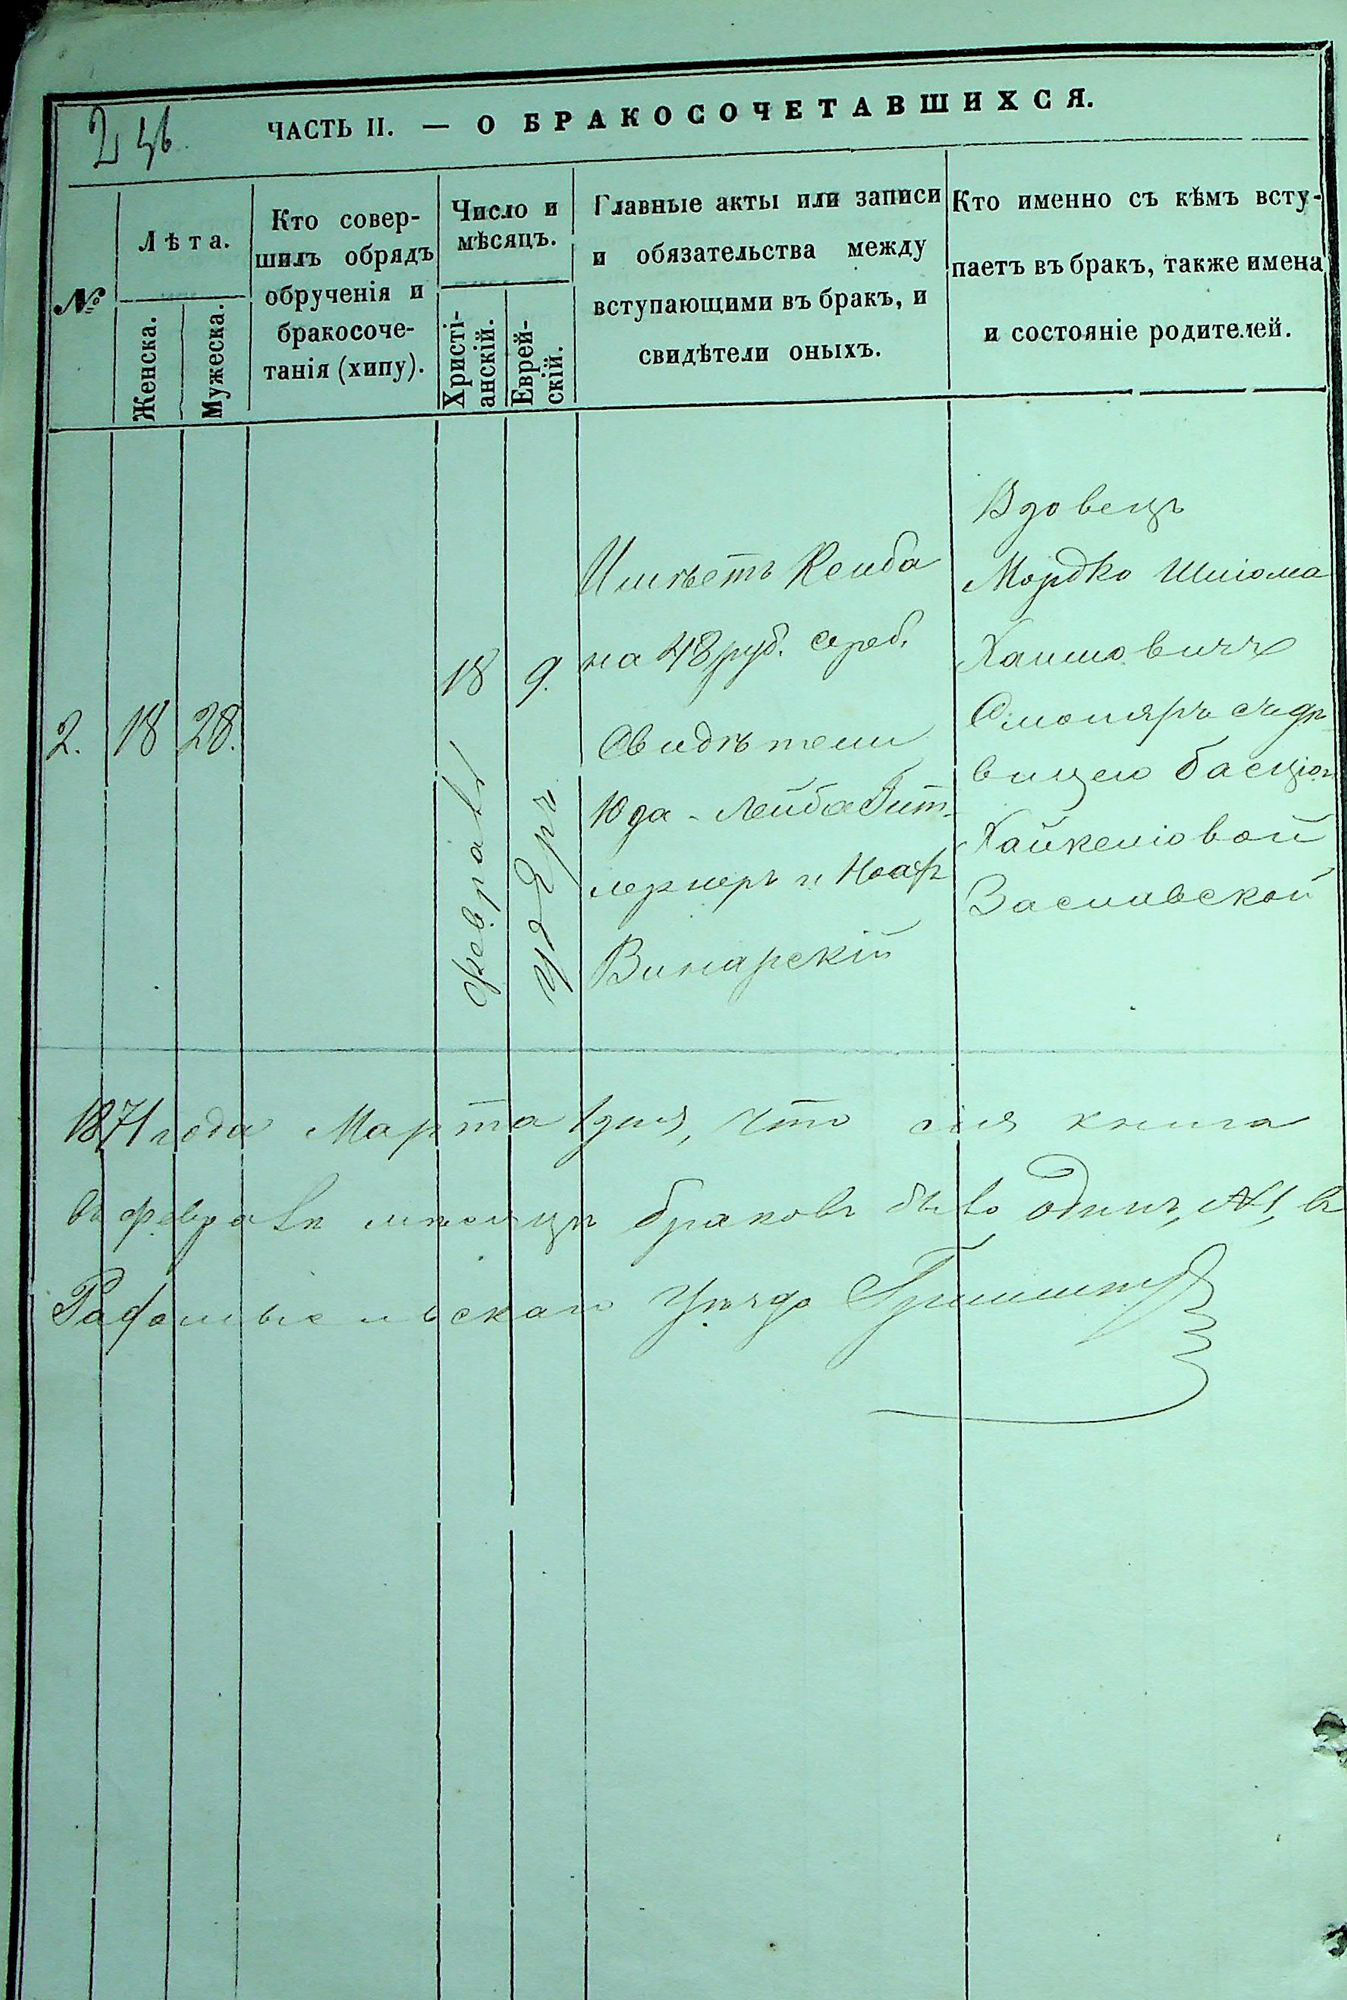 246.
ЧАСТЬ II. — О БРАКОСОЧЕТАВШИХСЯ.
№
Лѣта.
Женска.
Мужеска.
Кто совер-
шилъ обрядъ
обрученія и
бракосоче-
танія (хипу).
Число и
мѣсяцъ.
Христі-
анскій.
Еврей-
скій.
Главныe акты или записи
и обязательства между
вступающими въ бракъ, и
свидѣтели оныхъ.
Кто именно съ кѣмъ всту-
паетъ въ бракъ, также имена
и состояніе родителей.
2.
18
28.
18
февраля
9.
Имѣетъ
на 48 руб. сереб.
Свидѣтели
Юда-Лейба Гит-
лернеръ и
Винарскій
Вдовецъ
Мордко Шліома
Хаимовичъ
Смоляръ съ дѣ-
вицею Басцею
Хайкелювой
Заславской
1871 года Марта 1 дня, что сія книга
въ февралѣ мѣсяцѣ браковъ было одинъ, №1, въ
Радомысльскаго Уѣзда